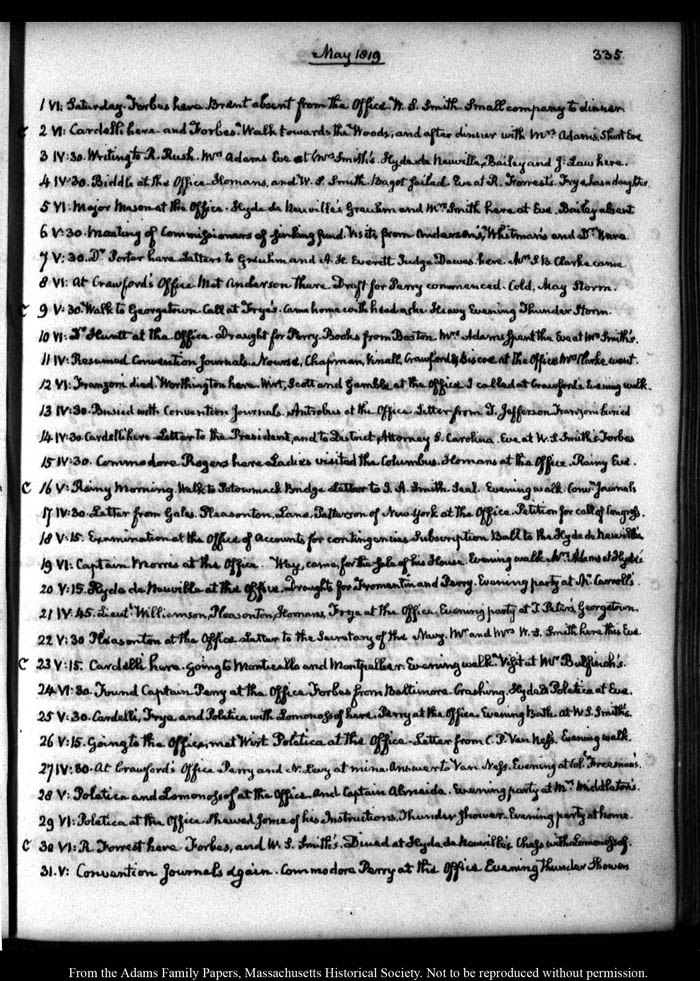 May 1819
335
1 VI: Saturday. Forbes here Brent absent from the Office. W. S. Smith. Small company to dinner
C 2 VI: Cardelli here and Forbes. Walk towards the Woods, and after dinner with Mrs Adams. Short Eve
3 IV:30. Writing to R. Rush. Mrs Adams Eve at Mrs Smith's. Hyde de Neuville, Bailey and J. Law here.
4 IV:30. Biddle at the Office. Homans, and W. S. Smith Bagot failed. Eve at R. Forrest's. Frye has a daughter
5 VI: Major Mason at the Office. Hyde de Neuville's Greuhm and Mrs Smith here at Eve. Bailey absent
6 V:30. Meeting of Commissioners of sinking fund. Visits from Anderson's, Whitman's and Dr Ware
7 V:30. Dr Porter here Letters to Greuhm and A. H. Everett Judge Dawes here. Mrs S. B. Clarke came
8 VI: At Crawford's Office Met Anderson there. Draft for Perry commenced. Cold, May Storm.
C 9 V:30. Walk to Georgetown. Call at Frye's. Came home with head ache. Heavy Evening Thunder Storm.
10 VI: Dr Huntt at the Office. Draught for Perry. Books from Boston. Mrs Adams spent the Eve at Mrs Smith's.
11 IV: Resumed Convention Journals. Nourse, Chapman, Crawford & Biscoe at the Office Mrs Clarke went.
12 VI: Franzoni died. Worthington here. Wirt, Scott and Gamble at the Office I called at Crawford's Evening walk.
13 IV:30. Busied with Convention Journals. Antrobus at the Office. Letter from T. Jefferson Franzoni buried
14 IV:30 Cardelli here Letter to the President, and to District Attorney S. Carolina. Eve at W. S. Smith's Forbes
15 IV:30. Commodore Rogers here Ladies visited the Columbus. Homans at the Office. Rainy Eve.
C 16 V: Rainy Morning. Walk to Potowmack Bridge Letter to J. A. Smith Seal. Evening walk. Convn Journals
17 IV:30. Letter from Gales. Pleasonton, Lane, Patterson of New York at the Office. Petition for call of Congress.
18 V:15. Examination at the Office of Accounts for contingencies Subscription Ball to the Hyde de Neuville's
19 VI: Captain Morris at the Office. Way, came, for the Sale of his House. Evening walk. Mrs Adams at Hyde's
20 V:15. Hyde de Neuville at the Office. Draughts for Fromentin and Perry. Evening party at Mr Carroll's.
21 IV:45. Lieutt Williamson, Pleasonton, Homans, Frye at the Office. Evening party at T. Peter's Georgetown.
22 V:30 Pleasonton at the Office Letter to the Secretary of the Navy. Mr and Mrs W. S. Smith here this Eve
C 23 V:15. Cardelli here. going to Monticello and Montpellier. Evening walk. Visit at Mr Bulfinch's.
24 VI:30. Found Captain Perry at the Office Forbes from Baltimore Crashing. Hyde & Poletica at Eve.
25 V:30. Cardelli, Frye, and Poletica with Lomonossof here. Perry at the Office. Evening Bath. at W. S. Smith's
26 V:15. Going to the Office, met Wirt Poletica at the Office. Letter from C. P. Van Ness. Evening walk.
27 IV:30. At Crawford's Office Perry and N. Levy at mine. Answer to Van Ness. Evening at Col. Freeman's.
28 V: Poletica and Lomonossof at the Office. And Captain Almeida. Evening party at Mrs Middleton's.
29 VI: Poletica at the Office. Shewed some of his Instructions. Thunder Shower. Evening party at home.
C 30 VI: R. Forrest here. Forbes, and W. S. Smith's. Dined at Hyde de Neuville's Chess with Lomonossof.
31. V: Convention Journals again. Commodore Perry at the Office Evening Thunder Shower
From the Adams Family Papers, Massachusetts Historical Society. Not to be reproduced without permission.